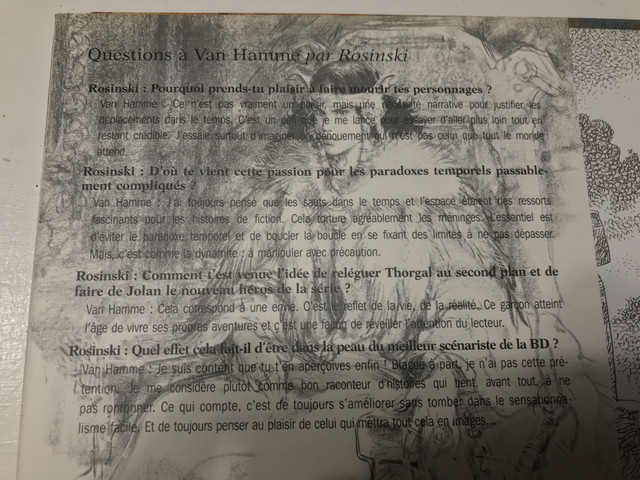 Questions à Van Hamme par Rosinski
Rosinski : Pourquoi prends-tu plaisir à faire mourir tes personnages ?
Van Hamme : Ce n'est pas vraiment un plaisir, mais une nécessité narrative pour justifier les
déplacements dans le temps. C'est un défi que je me lance pour essayer d'aller plus loin tout en
restant crédible. J'essaie surtout d'imaginer un dénouement qui n'est pas celui que tout le monde
attend.
Rosinski : D'où te vient cette passion pour les paradoxes temporels passable-
ment compliqués ?
Van Hamme : J'ai toujours pensé que les sauts dans le temps et l'espace étaient des ressorts
fascinants pour les histoires de fiction. Cela torture agréablement les méninges. L'essentiel est
d'éviter le paradoxe temporel et de boucler la boucle en se fixant des limites à ne pas dépasser.
Mais, c'est comme la dynamite : à manipuler avec précaution.
Rosinski : Comment t'est venue l'idée de reléguer Thorgal au second plan et de
faire de Jolan le nouveau héros de la série ?
Van Hamme : Cela correspond à une envie. C'est le reflet de la vie, de la réalité. Ce garçon atteint
l'âge de vivre ses propres aventures et c'est une façon de réveiller l'attention du lecteur.
Rosinski : Quel effet cela fait-il d'être dans la peau du meilleur scénariste de la BD ?
Van Hamme : Je suis content que tu t'en aperçoives enfin ! Blague à part, je n'ai pas cette pré-
tention. Je me considère plutôt comme bon raconteur d'histoires qui tient, avant tout, à ne
pas ronronner. Ce qui compte, c'est de toujours s'améliorer sans tomber dans le sensationna-
lisme facile. Et de toujours penser au plaisir de celui qui mettra tout cela en images...